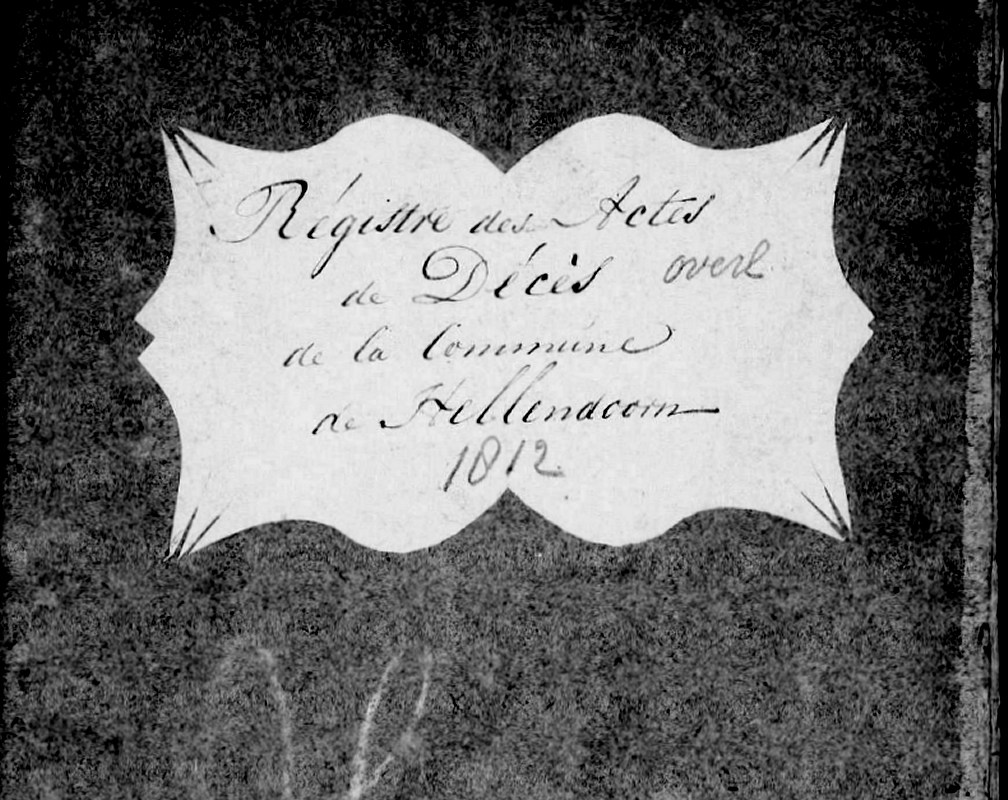 Régistre des Actes
de Décès overl
de la Commune
de Hellendoorn
1812